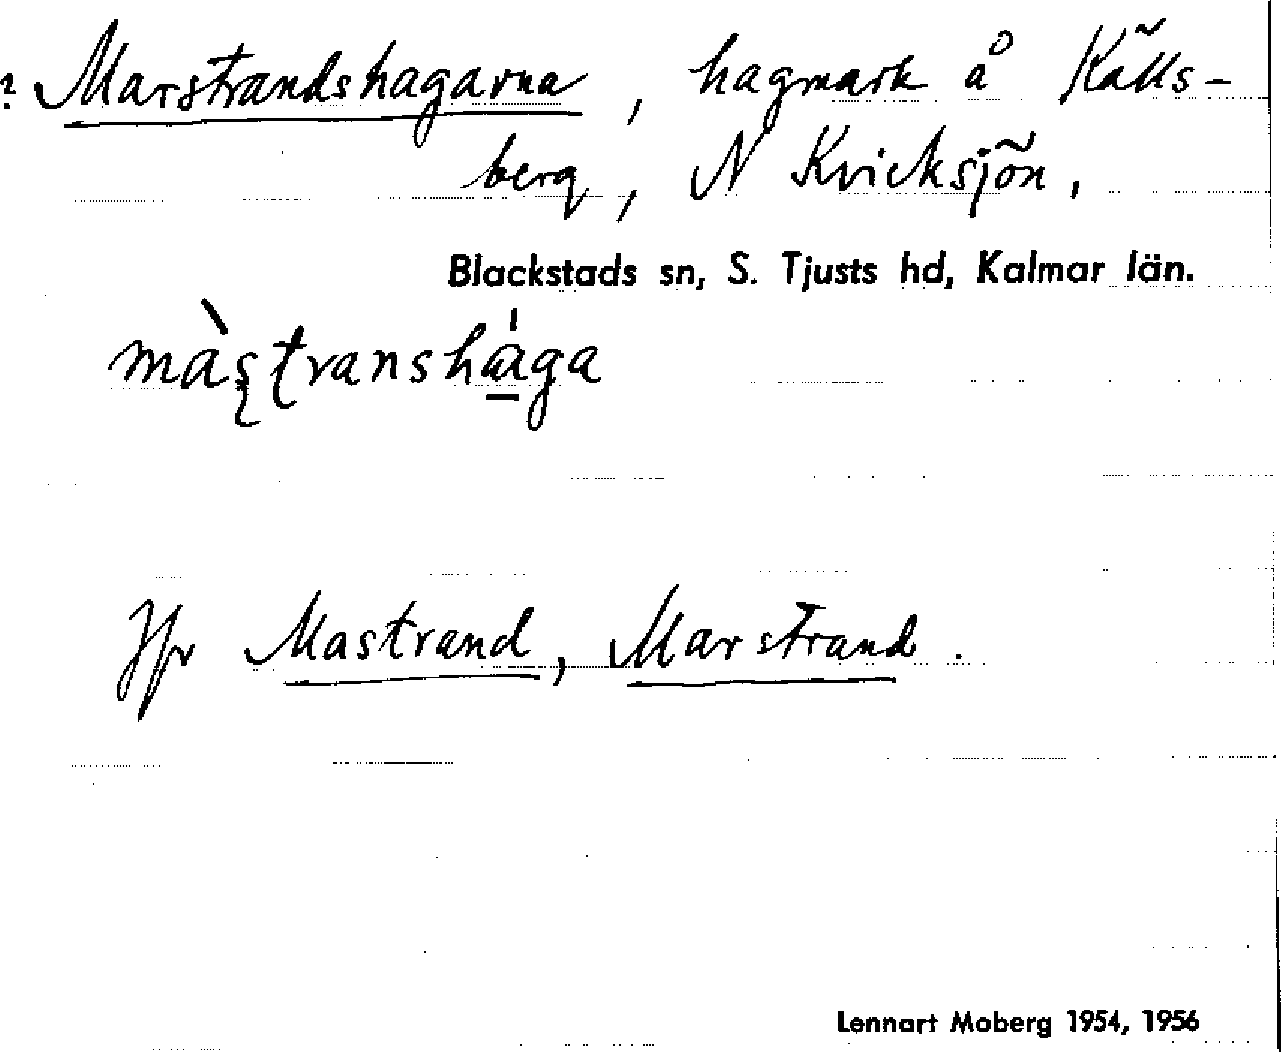 ? Marstrandshagarna, hagmark å Källs-
berg, N Kvicksjön,
Blackstads sn, S. Tjusts hd, Kalmar län.
màʂʈranshága
Jfr Mastrand, Marstrand.
Lennart Moberg 1954, 1956